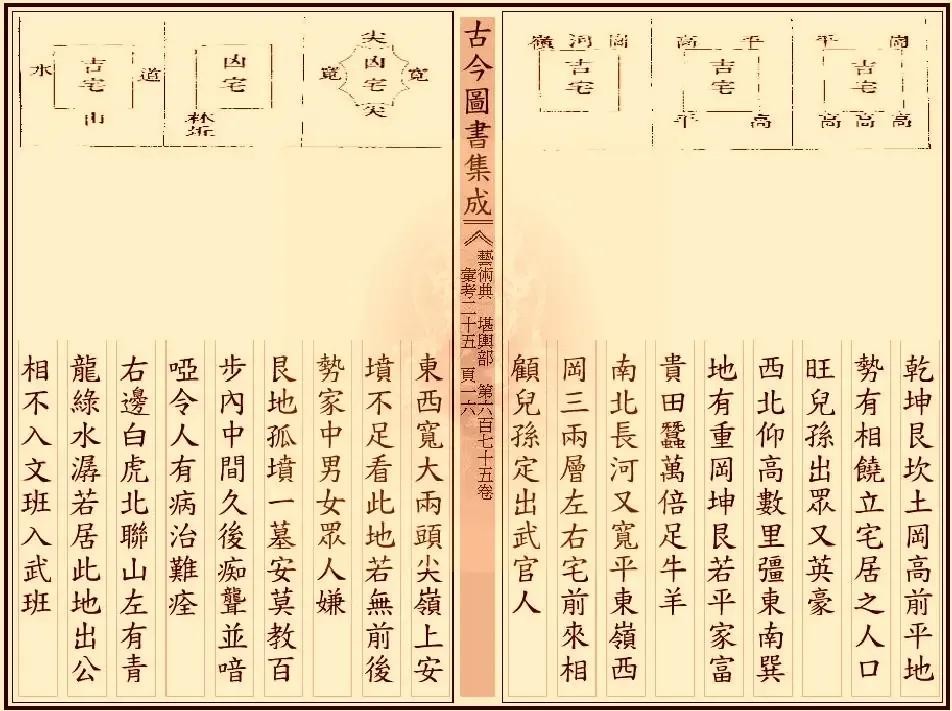 岡 平
吉宅
高 高 高
平 高
吉宅
高 平
岡 河 嶺
吉宅
乾坤艮坎土岡高前平地
勢有相饒立宅居之人口
旺兒孫出眾又英豪
西北仰高數里彊東南巽
地有重岡坤艮若平家富
貴田蠶萬倍足牛羊
南北長河又寬平東嶺西
岡三兩層左右宅前來相
顧兒孫定出武官人
古今圖書集成
藝術典 堪輿部 第六百七十五卷
彙考二十五 頁一六
尖
寬 凶宅 寬
尖
凶宅
林
道 吉宅 水
山
東西寬大兩頭尖嶺上安
墳不足看此地若無前後
勢家中男女眾人嫌
艮地孤墳一墓安莫教百
步內中間久後痴聾並喑
啞令人有病治難痊
右邊白虎北聯山左有青
龍綠水潺若居此地出公
相不入文班入武班